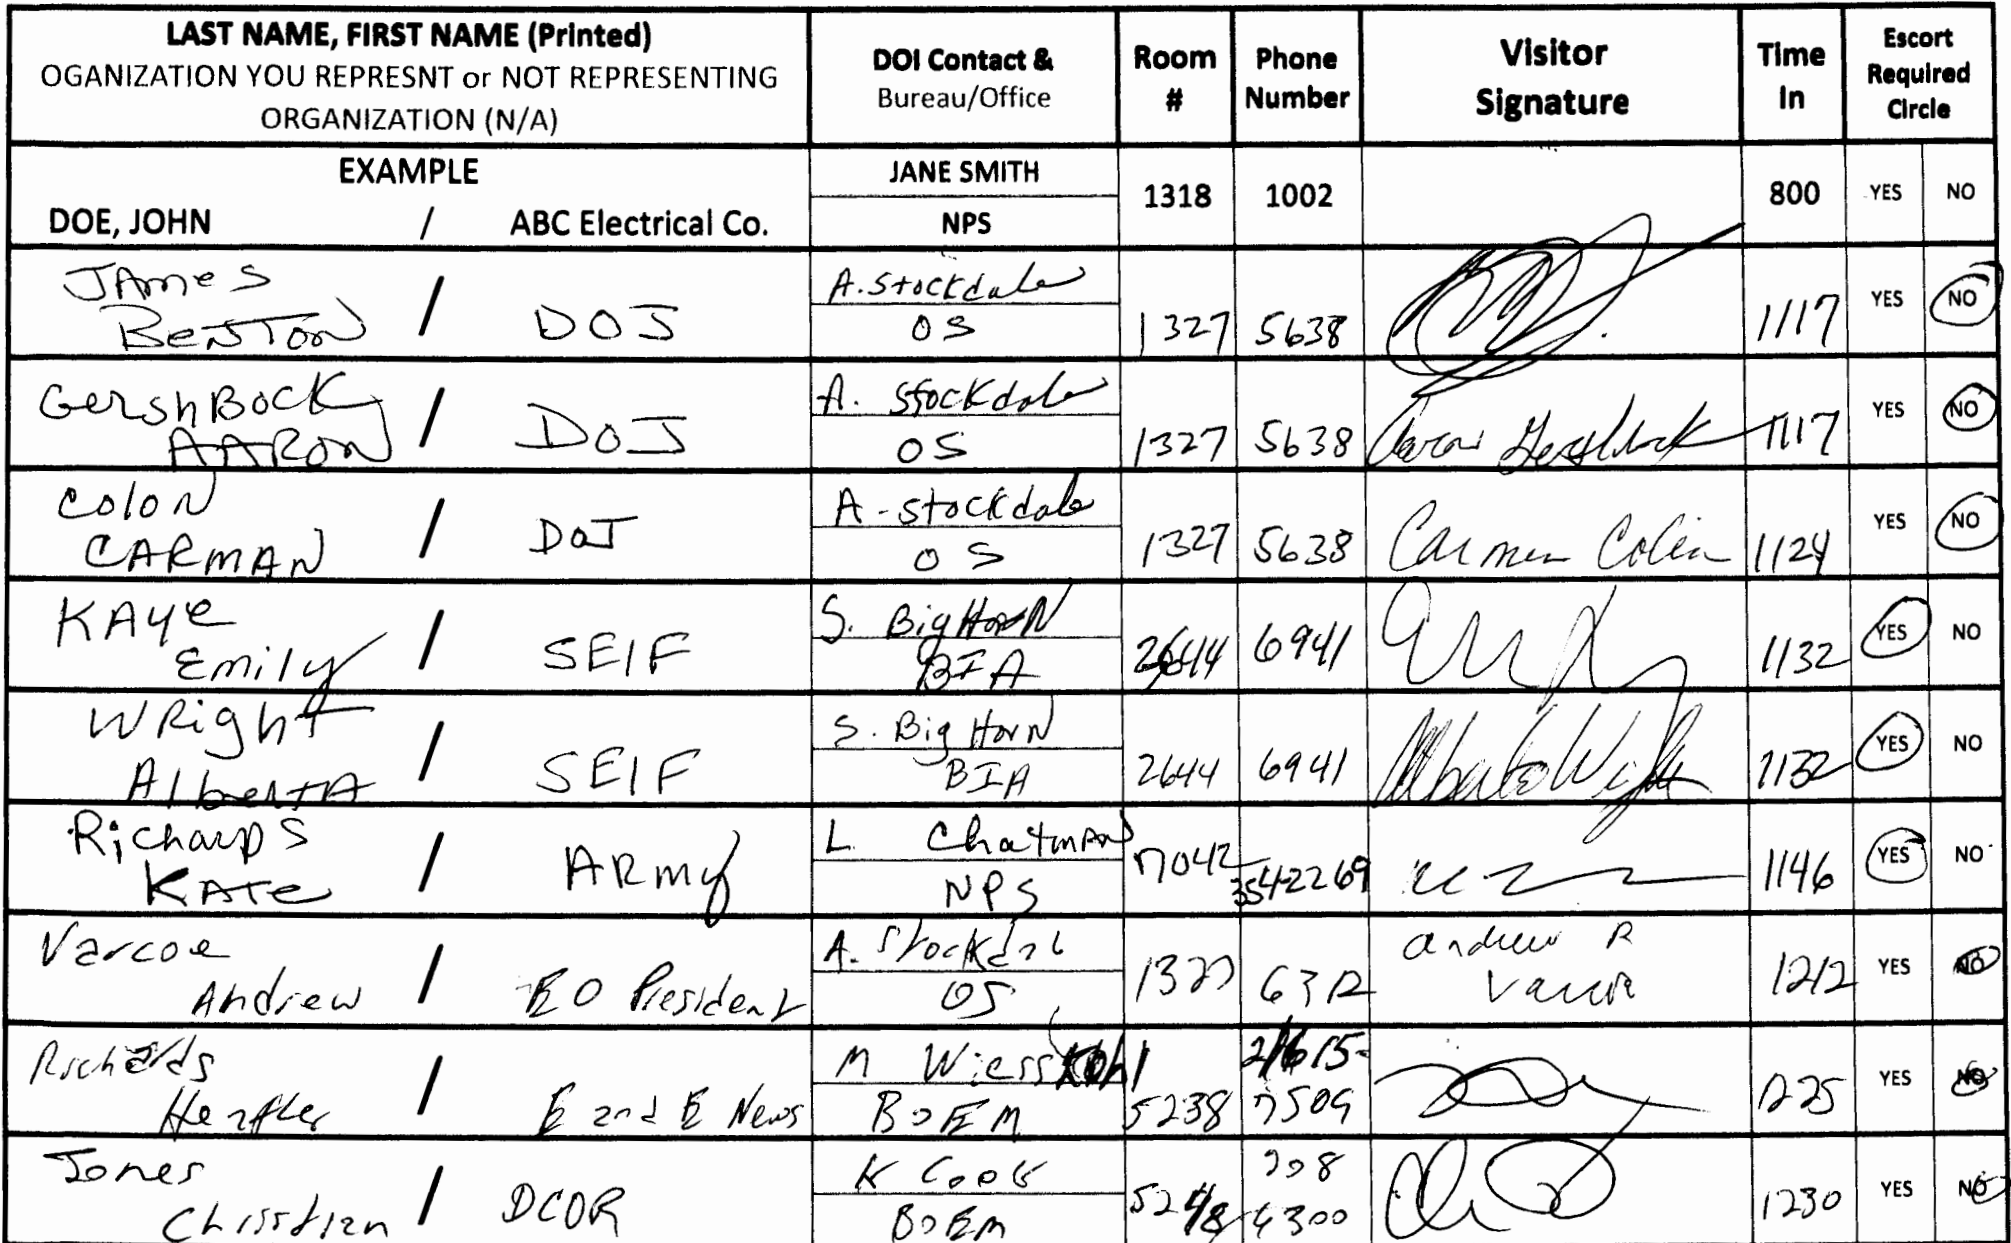 LAST NAME, FIRST NAME (Printed)
OGANIZATION YOU REPRESNT or NOT REPRESENTING
ORGANIZATION (N/A)
DOI Contact &
Bureau/Office
Room
#
Phone
Number
Visitor
Signature
Time
In
Escort
Required
Circle
EXAMPLE
DOE, JOHN / ABC Electrical Co.
JANE SMITH
NPS
1318
1002
800
YES NO
James
Benton / DOJ
A. Stockdale
OS
1327
5638
1117
YES NO
GershBock
AARON / DOJ
A. Stockdale
OS
1327
5638
Aaron Gershbock
1117
YES NO
Colon
CARMAN / DOJ
A. Stockdale
OS
1327
5638
Carmen Colón
1124
YES NO
KAye
Emily / SEIF
S. BigHorn
BIA
2644
6941
1132
YES NO
WRight
AlberTA / SEIF
S. Big Horn
BIA
2644
6941
Alberta Wright
1132
YES NO
Richards
KATe / ARmy
L Chatman
NPS
7042
3542269
1146
YES NO
Varcoe
Andrew / EO President
A. Stockdale
OS
1327
6312
Andrew R
Varcoe
1212
YES NO
Richards
Heather / E and E News
M
BOEM
5238
7509
1225
YES NO
Jones
Christian / DCOR
K Cook
BOEM
5248
208
6300
1230
YES NO